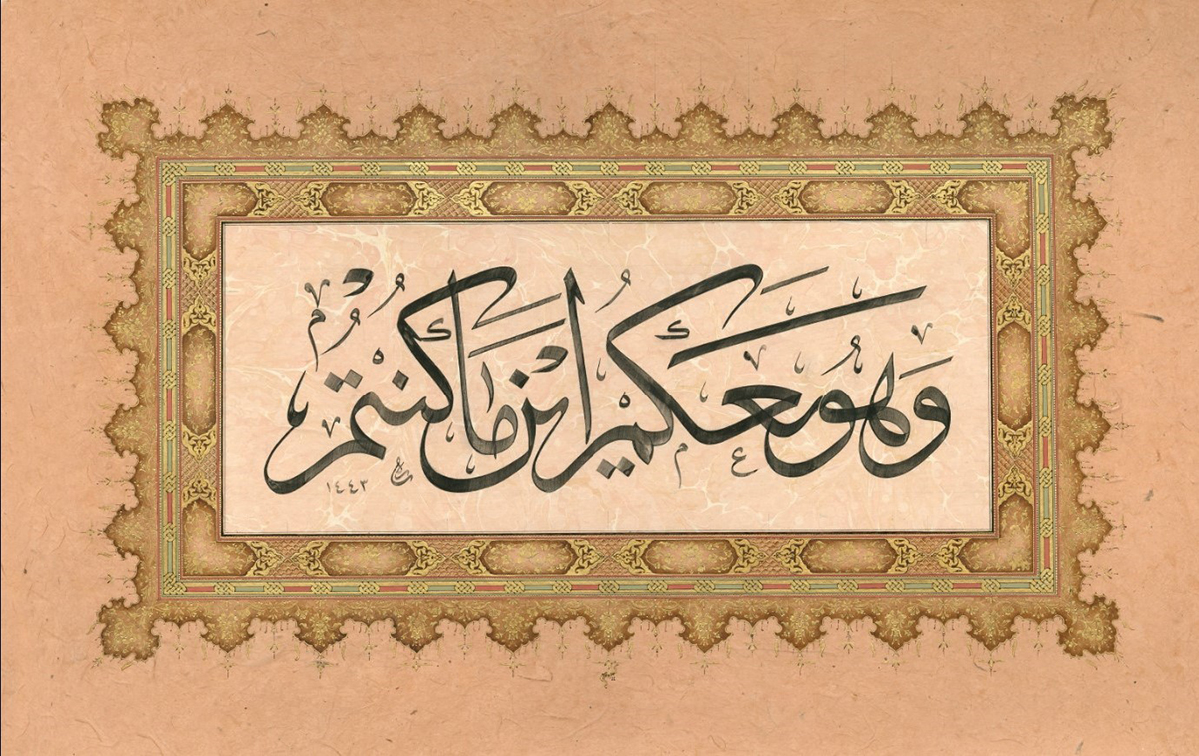 وَهُوَ مَعَكُمْ أَيْنَ مَا كُنْتُمْ
١٤٤٣